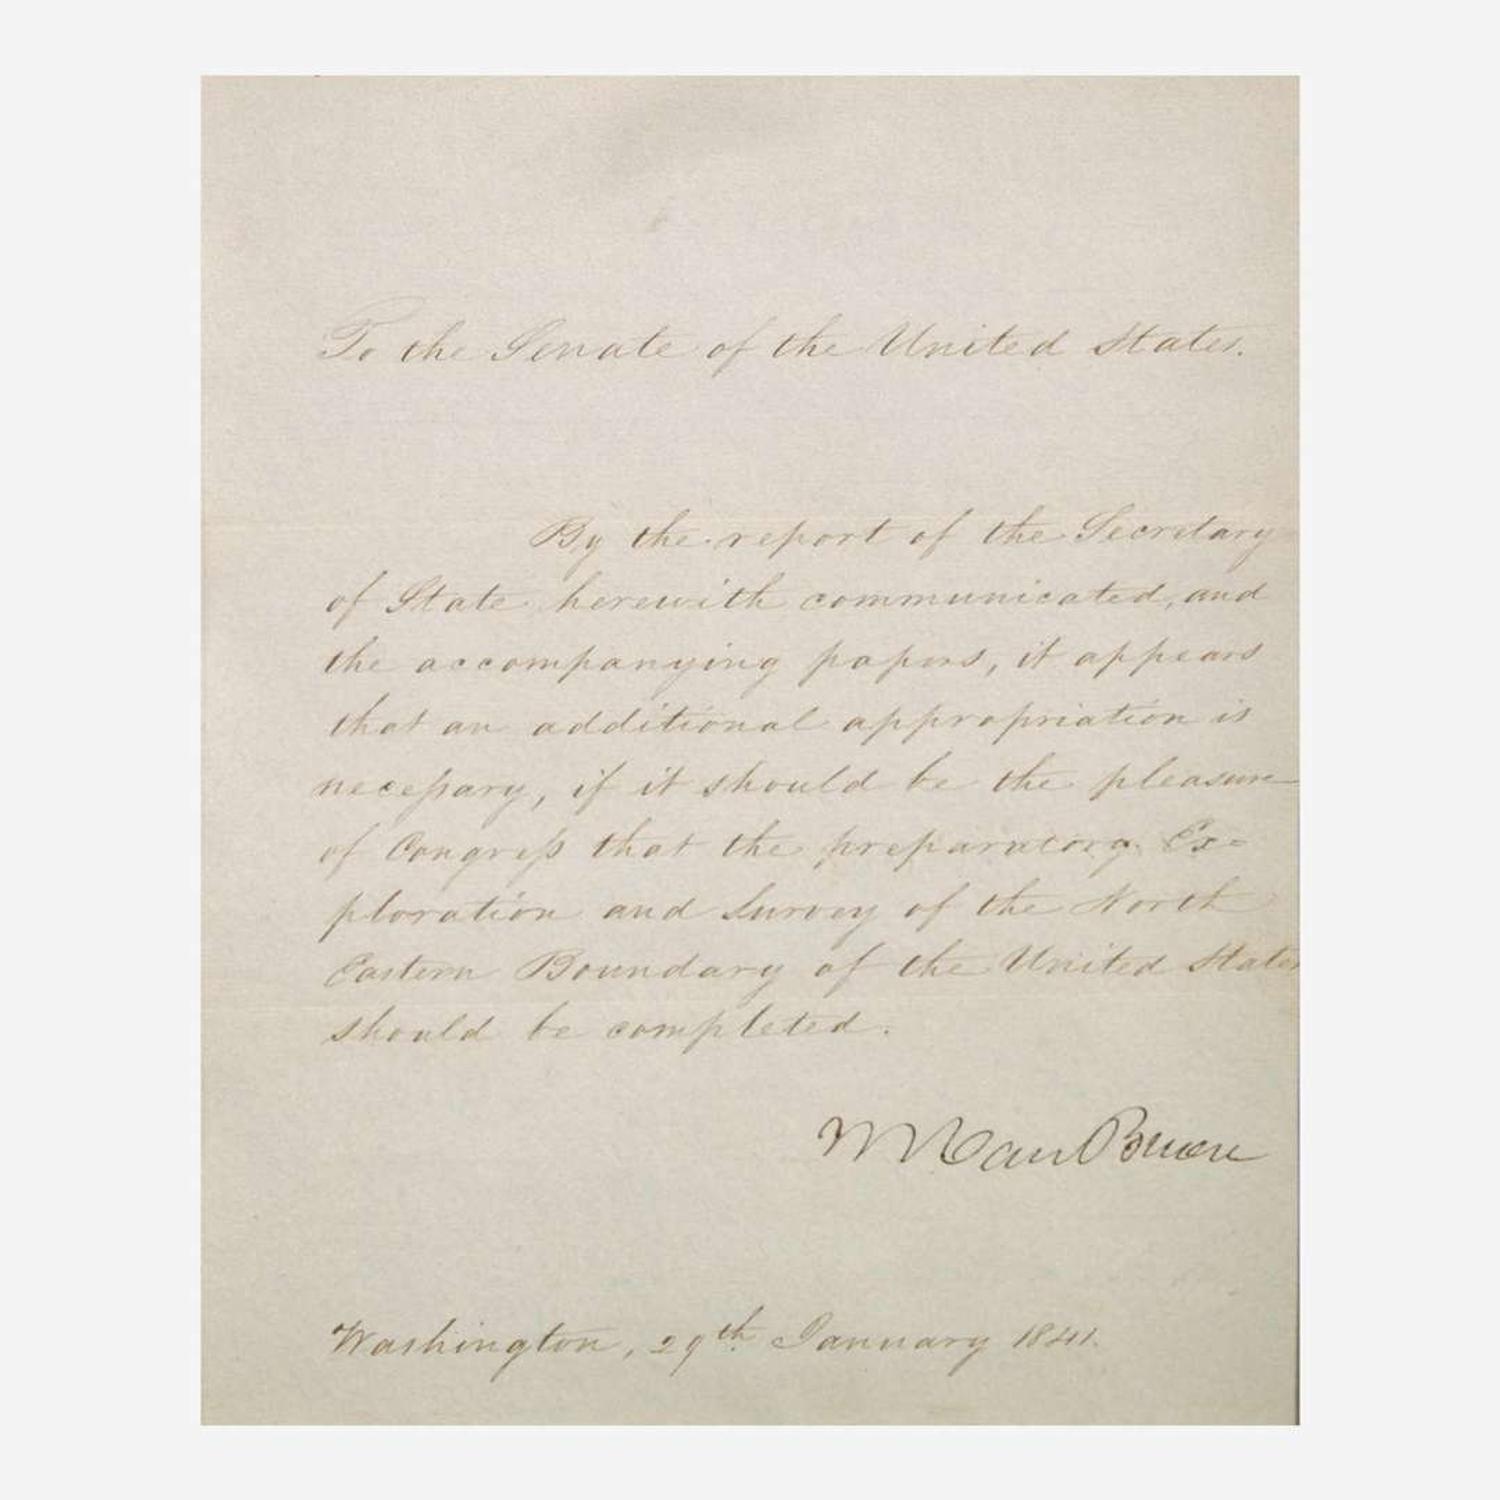 To the Senate of the United States.
By the report of the Secretary
of State herewith communicated, and
the accompanying papers, it appears
that an additional appropriation is
necessary, if it should be the pleasure
of Congress that the preparatory Ex=
ploration and Survey of the North
Eastern Boundary of the United States
should be completed.
M Van Buren
Washington, 29th January 1841.